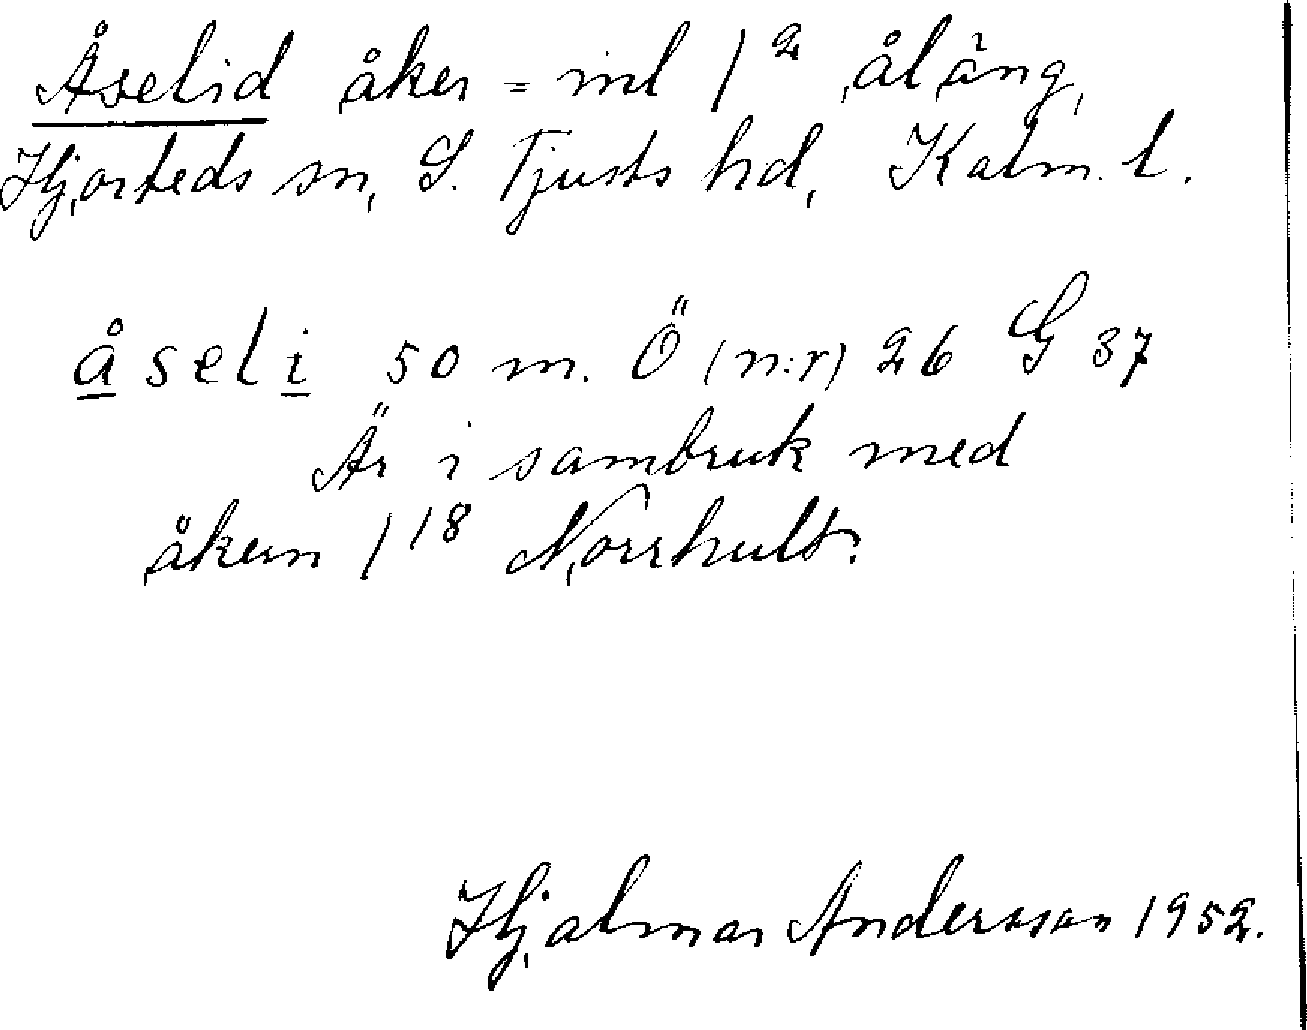 Åselid åker = inl 1² åläng,
Hjorteds sn, S. Tjusts hd, Kalm. l.
åseli 50 m. Ö (n:r) 26 G 37
Är i sambruk med
åkern 1¹⁸ Norrhult.
Hjalmar Andersson 1952.